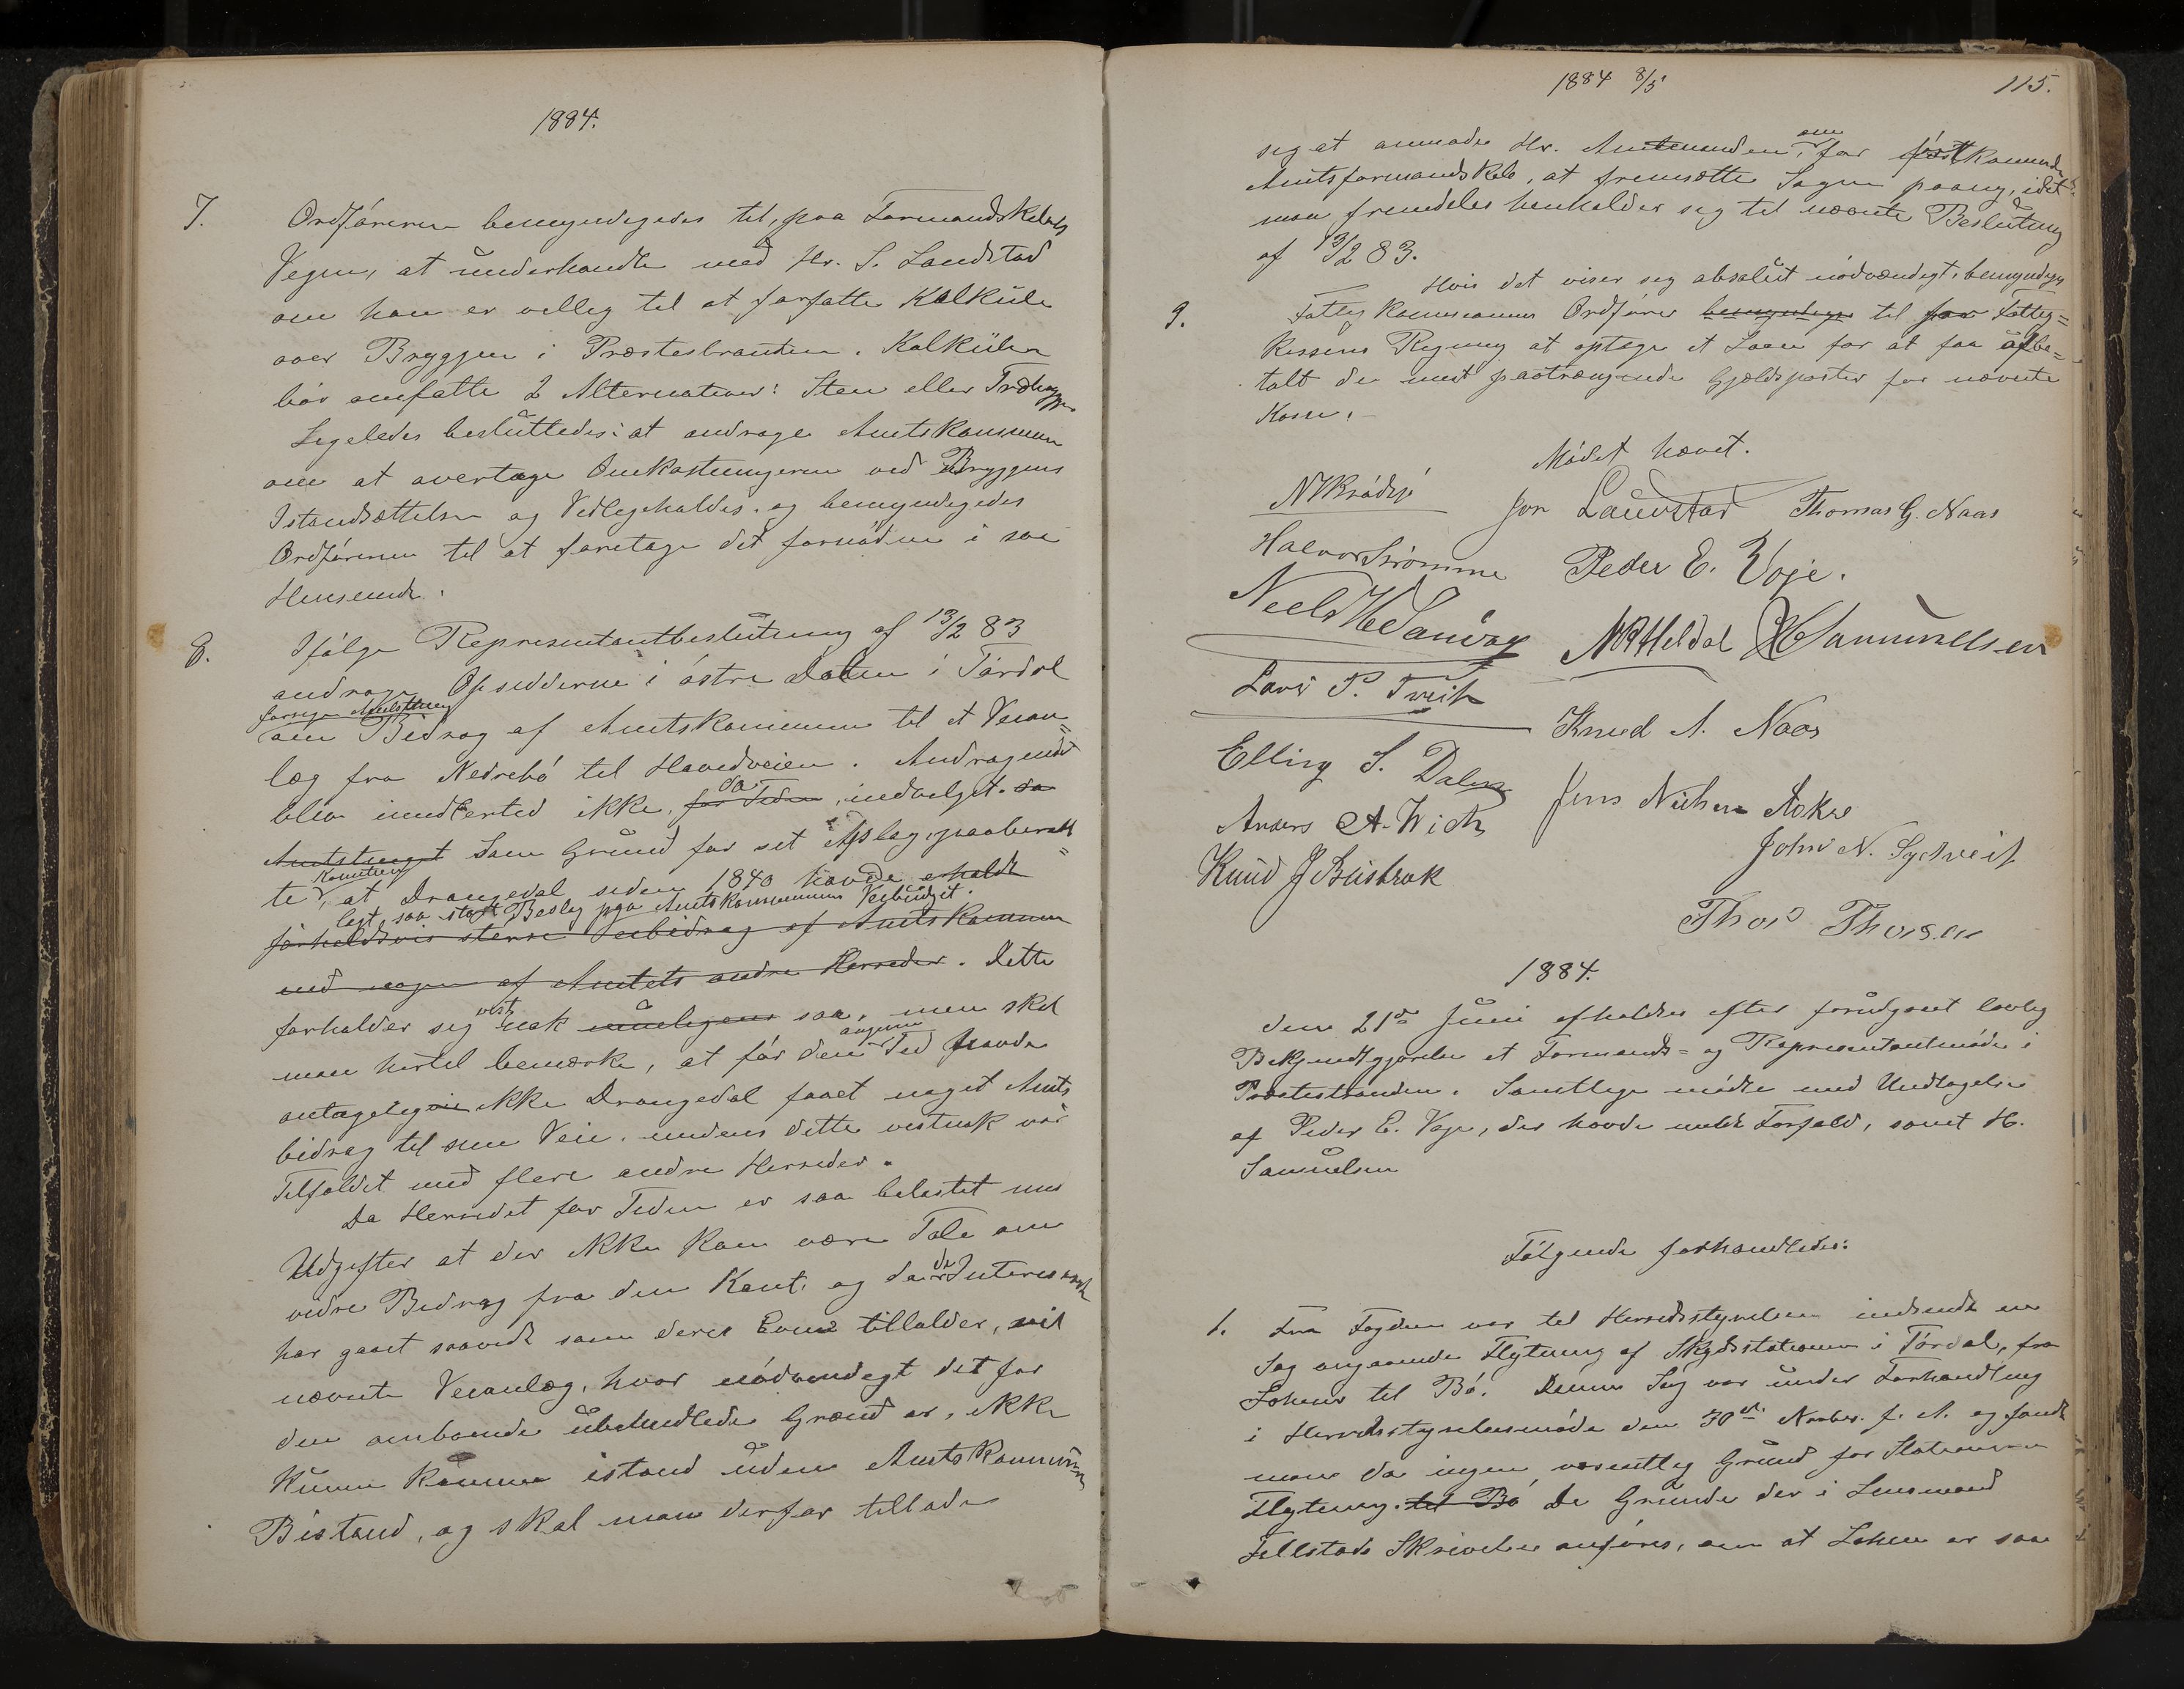 1884.
7. Ordføreren bemyndigedes til, paa Formandskabets
Vegne, at underhandle med Hr. S. Landstad
om han er villig til at forfatte Kalküle
over Bryggen i Præstestranden. Kalkülen
bör omfatte 2 Alternativer: Sten eller Træbrygge
Ligeledes besluttedes: at andrage Amtskommunen
om at overtage Omkostningerne ved Bryggens
Istandsættelse og Vedligeholdes. og bemyndigedes
Ordføreren til at foretage det fornødne i saa
Henseende.
8. Ifølge Representantbeslutning af 13/2 83
androge Opsidderne i östre Dalen i Tørdal
forrige Amtsthing
om Bidrag af Amtskommunen til et Veian=
læg fra Nedrebø til Hovedveien. Andragendet
da
blev imidlertid ikke, for Tiden, indvilget. da
Amtstinget Som Grund for sit Afslag, paaberaab=
Komiteen
te, at Drangedal siden 1840 havde erholdt
lagt saa stort Beslag paa Amtskommunens Veibudget.
forholdsvis større Veibidrag af Amtskommunen
end nogen af Amtets andre Herreder. Dette
vist
forholder sig nok rimeligens saa, men skal
angivne
man hertil bemærke, at før den Tid havde
antageligvis ikke Drangedal faaet noget Amts
bidrag til sine Veie. medens dette vistnok var
Tilfældet med flere andre Herreder.
Da Herredet for Tiden er saa belastet med
Udgifter at der ikke kan være Tale om
de
vidre Bidrag fra den Kant, og da Interesserede
har gaaet saavidt som deres Evne tillader, vil
nævnte Veianlæg, hvor nödvendigt det for
den omboende ubemidlede Grænd er, ikke
kunne komme istand uden Amtskommunens
Bistand, og skal man derfor tillade
1884 8/5 115.
om
sig at anmode Hr. Amtmanden, for førstkommende
Amtsformandskab, at fremsætte Sagen paany, idet
man fremdeles henholder sig til nævnte Beslutning
af 13/2 83.
Hvis det viser sig absolut nödvændigt, bemyndiges
9. Fattigkommissionens Ordfører bemyndiges til for Fattig=
kassens Regning at optage et Laan for at faa afbe=
talt de mest paatrængende Gjældsposter for nævnte
Kasse.
Mödet hævet.
Jon Lauvstad Thomas G. Naas
Halvor Strømme Peder E. Voje.
Niels H Sandvog N R Heldal H Samuelsen
Lars P. Tveit
Knud A. Naas
Elling S. Dalen
Jens Nielsen Aakre
Anders A. Wich
John N. Sydtveit
Knud J Busterak
Thor Thorsen
1884.
Den 21de Juni afholdtes efter forudgaaet lovlig
Bekjendtgjørelse et Formands- og Representantmöde i
Præstestranden. Samtlige mödte med Undtagelse
af Peder E. Voje, der havde meldt Forfald, samt H.
Samuelsen
Følgende forhandledes:
1. Fra Fogden var til Herredsstyrelsen indsendt en
Sag angaaende Flytning af Skydsstationen i Tørdal, fra
Lohne til Bö. Denne Sag var under Forhandling
i Herredsstyrelsesmöde den 30te Novbr. f. A. og fandt
man da ingen væsentlig Grund for Stationens
Flytning. til Bö De Grunde der i Lensmand
Tellstads Skrivelse anføres, om at Lohne er saa